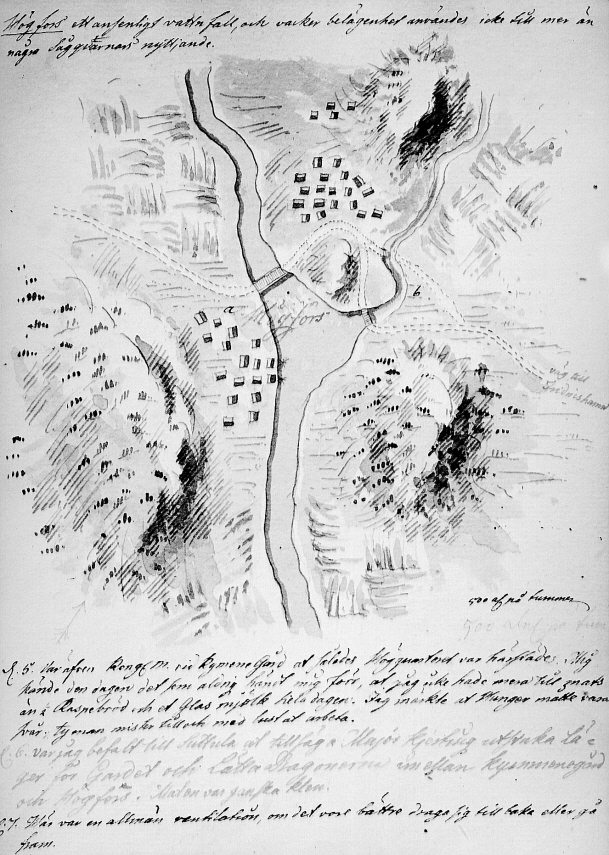 Högfors ett ansenligt vattnfall, och vacker belägenhet användes icke till mer än
några Sågqvarnars nyttjande.
a
Högfors
b
väg till
500 alnar på tummen
d. 5. Var äfven Kongl. M. vid Kymene Gård at således Högquarteret var härstäde. Mig
hände den dagen det som aldrig händt mig förr, at jag icke hade mera till mats
än 2 Kaspebröd och et Glas mjölk hela dagen. Jag märkte at Hunger måtte vara
svår, ty man mister till och med lust at arbeta.
d. 6. var jag befalt till Hittula at tillsäga Major utstaka Lä-
ger för Gardet och Lätta Dragonerne imellan Kymmenegård
och Högfors. Maten var ganska klen.
d. 7. Här var en allmän ventilation, om det vore bättre draga sig tillbaka eller gå
fram.